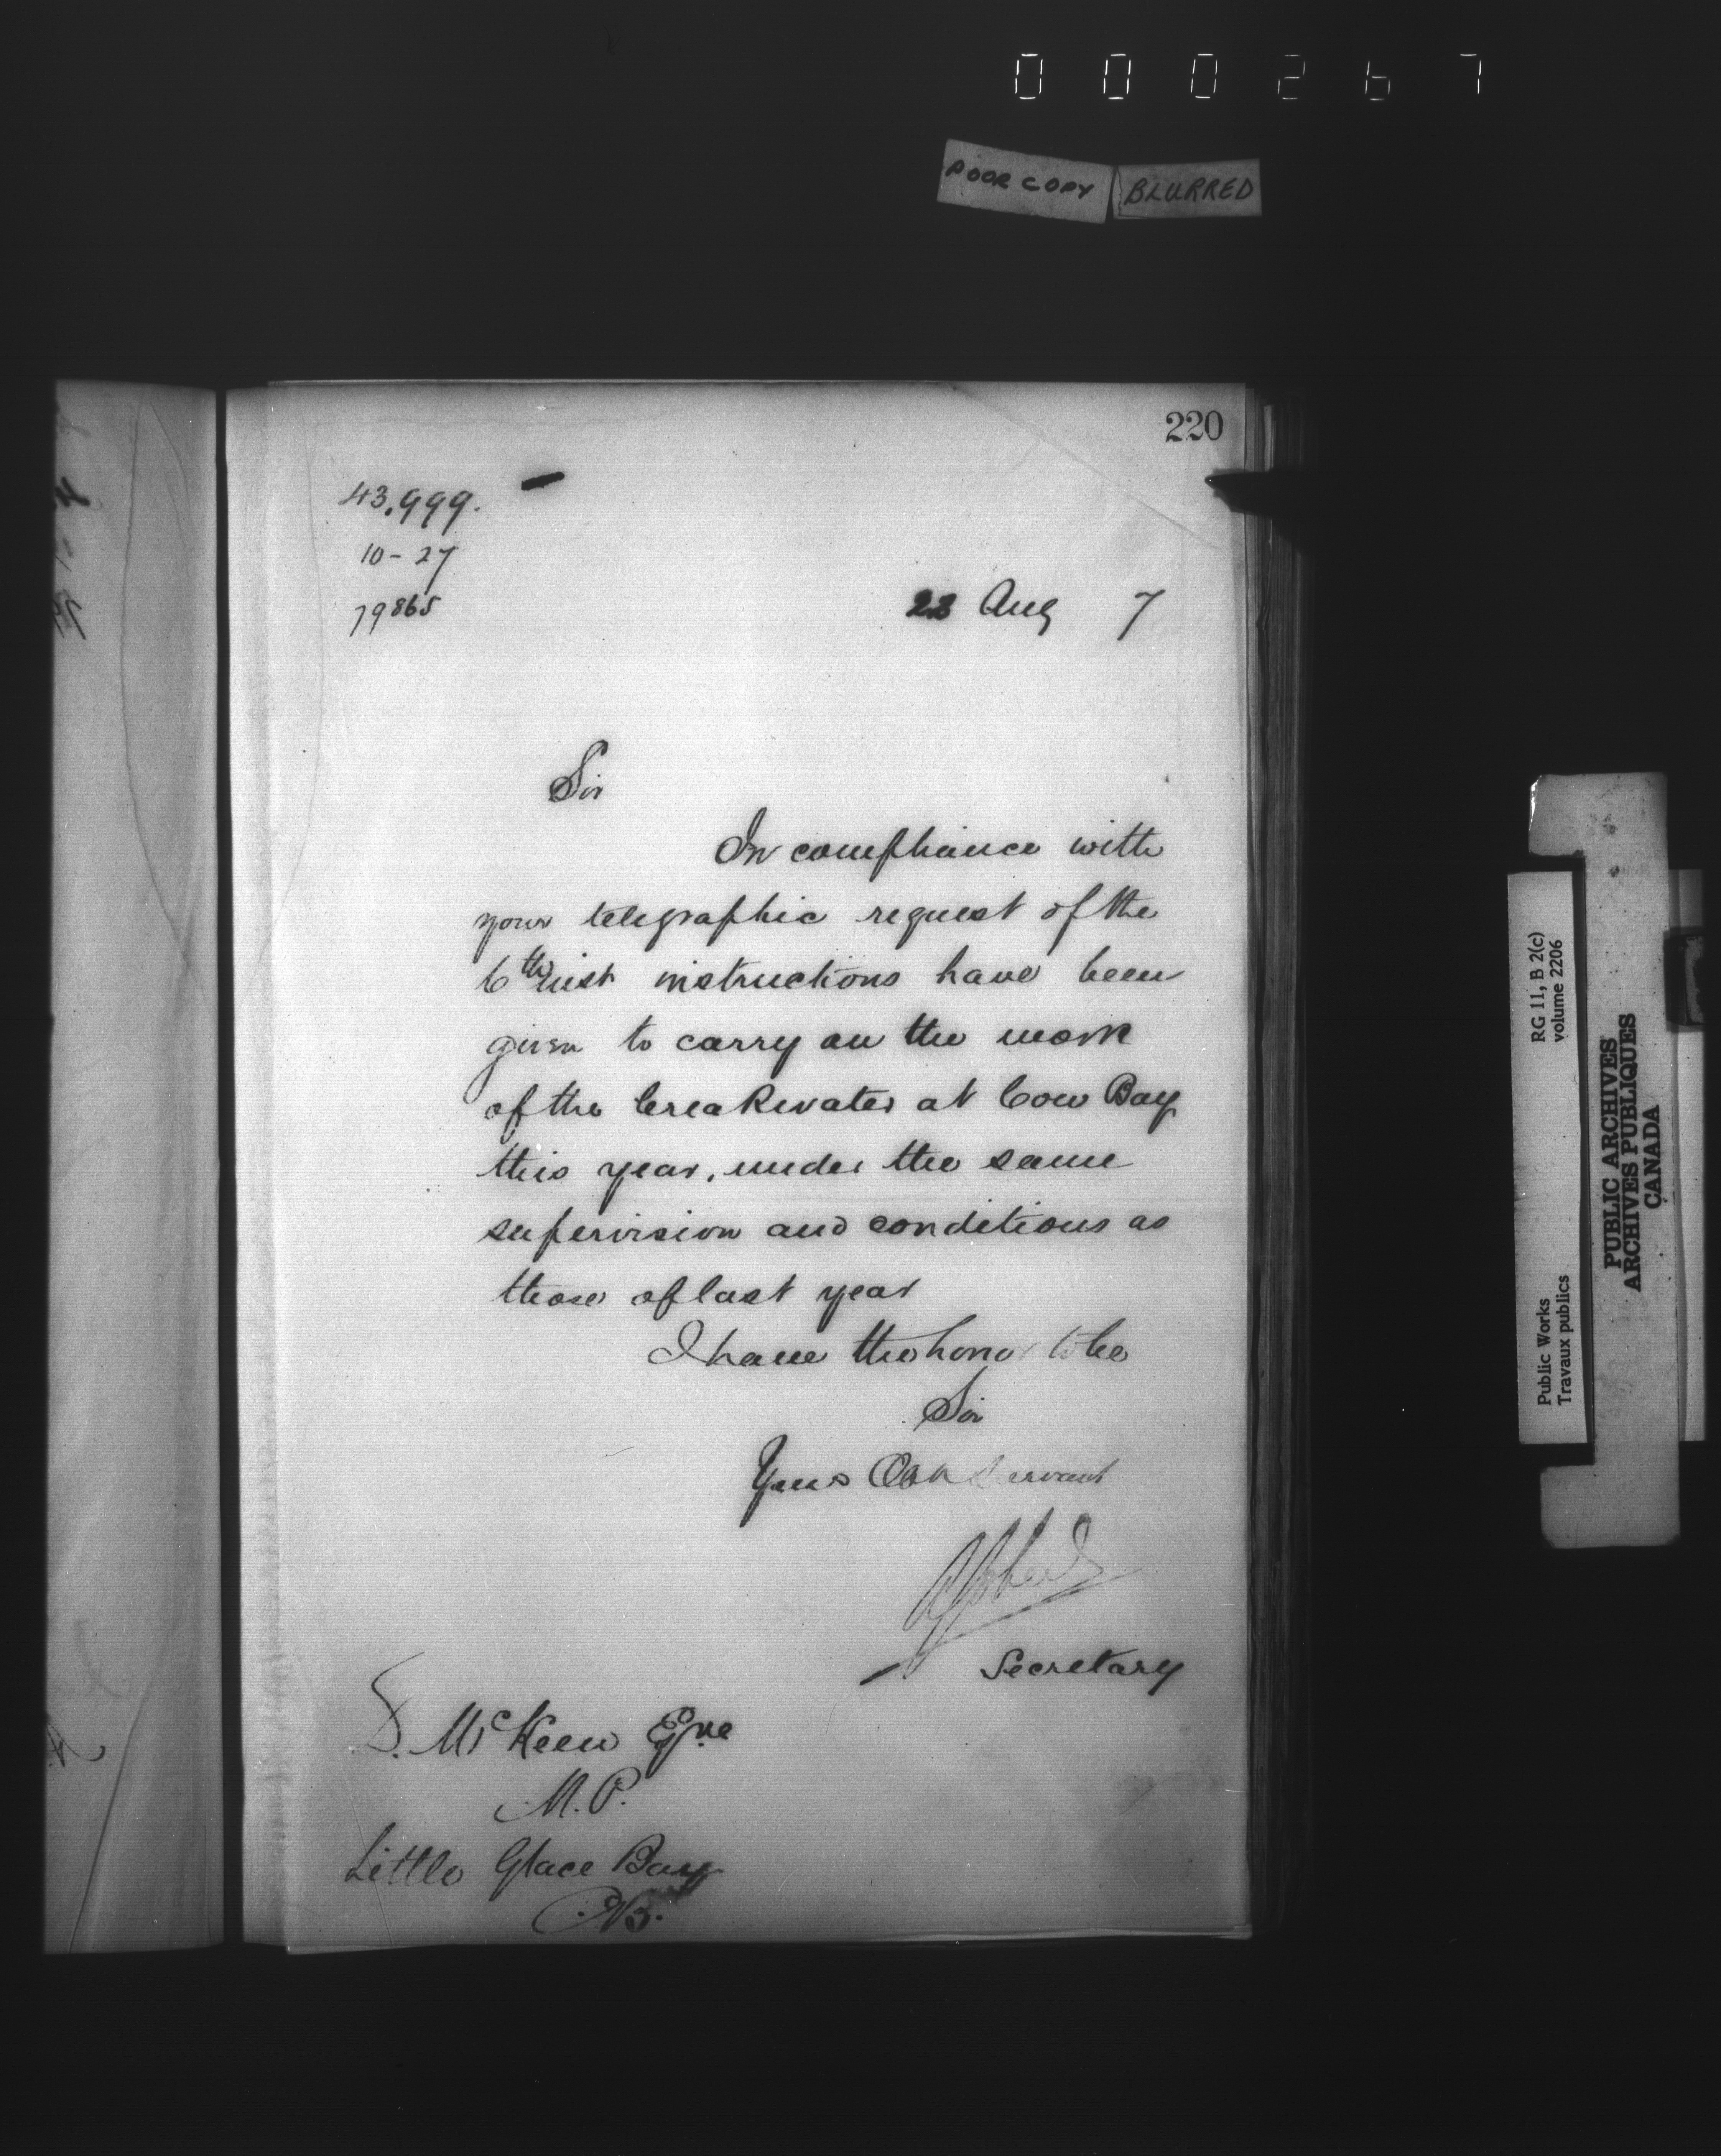 000267
POOR COPY BLURRED
220
43.999.
10-27
79865
Aug 7
Sir
In compliance with
your telegraphic request of the
6th inst instructions have been
given to carry on the work
of the breakwater at Cow Bay
this year, under the same
supervision and conditions as
those of last year
I have the honor to be
Sir
Your Obt Servant
Secretary
D. McKeen Esqre
M.P.
Little Glace Bay
C.B.
RG 11, B 2(c)
volume 2206
Public Works
Travaux publics
PUBLIC ARCHIVES
ARCHIVES PUBLIQUES
CANADA